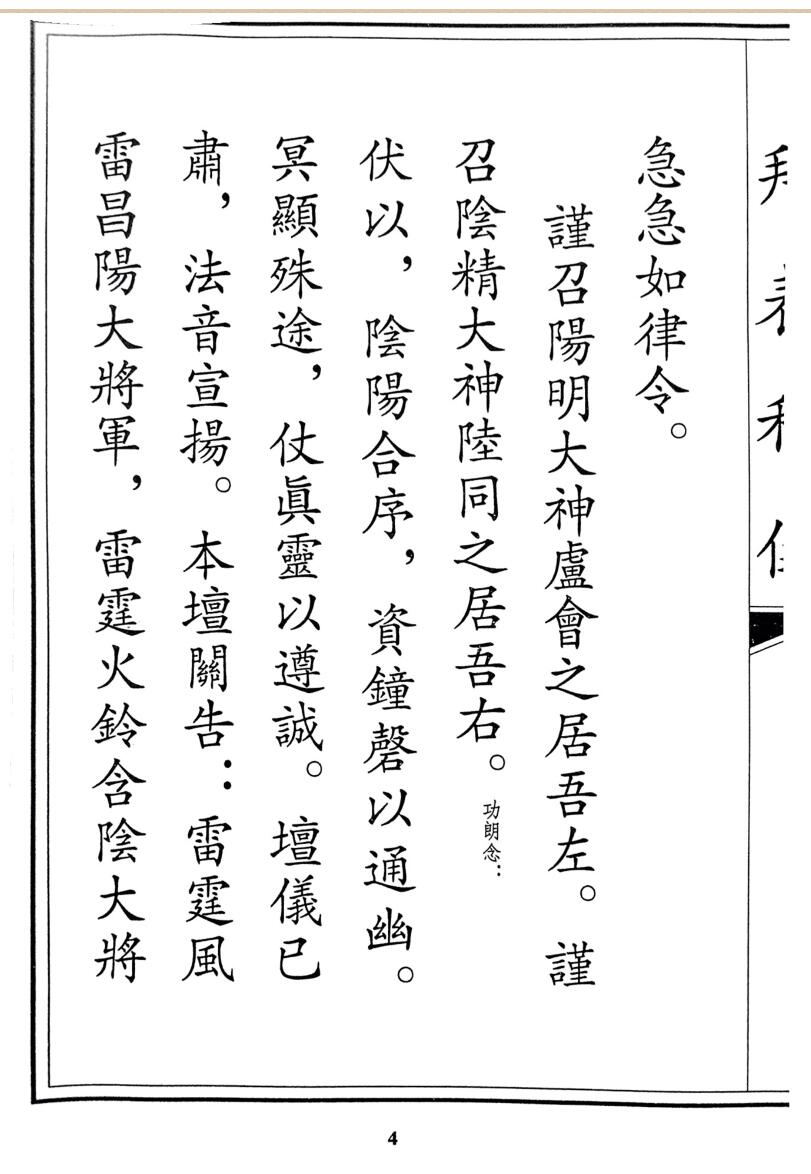 急急如律令。
謹召陽明大神盧會之居吾左。謹
召陰精大神陸同之居吾右。功朗念：
伏以，陰陽合序，資鐘磬以通幽。
冥顯殊途，仗眞靈以遵誠。壇儀已
肅，法音宣揚。本壇關告：雷霆風
雷昌陽大將軍，雷霆火鈴含陰大將
4